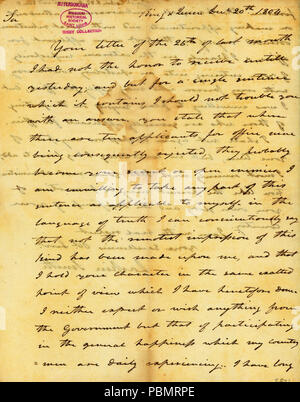 King & Queen Dec. 20th 1804
Sir
Your letter of the 28th of last month
I had not the honor to receive untill
yesterday, and but for a single sentence
which it contains, I should not trouble you
with an answer. you state that when
there are ten applicants for office nine
being consequently rejected, they probably
become your enemies. I
am unwilling to take any part of this
sentence as applicable to myself, in the
language of truth I can conscientiously say
that not the remotest impression of this
kind has been made upon me, and that
I hold your character in the same exalted
point of view which I have heretofore done.
I neither expect or wish any thing from
the Government but that of participating
in the general happiness which my country
=men are daily experiencing. I have long
alamy
alamy
Image ID: PBMRPE
www.alamy.com